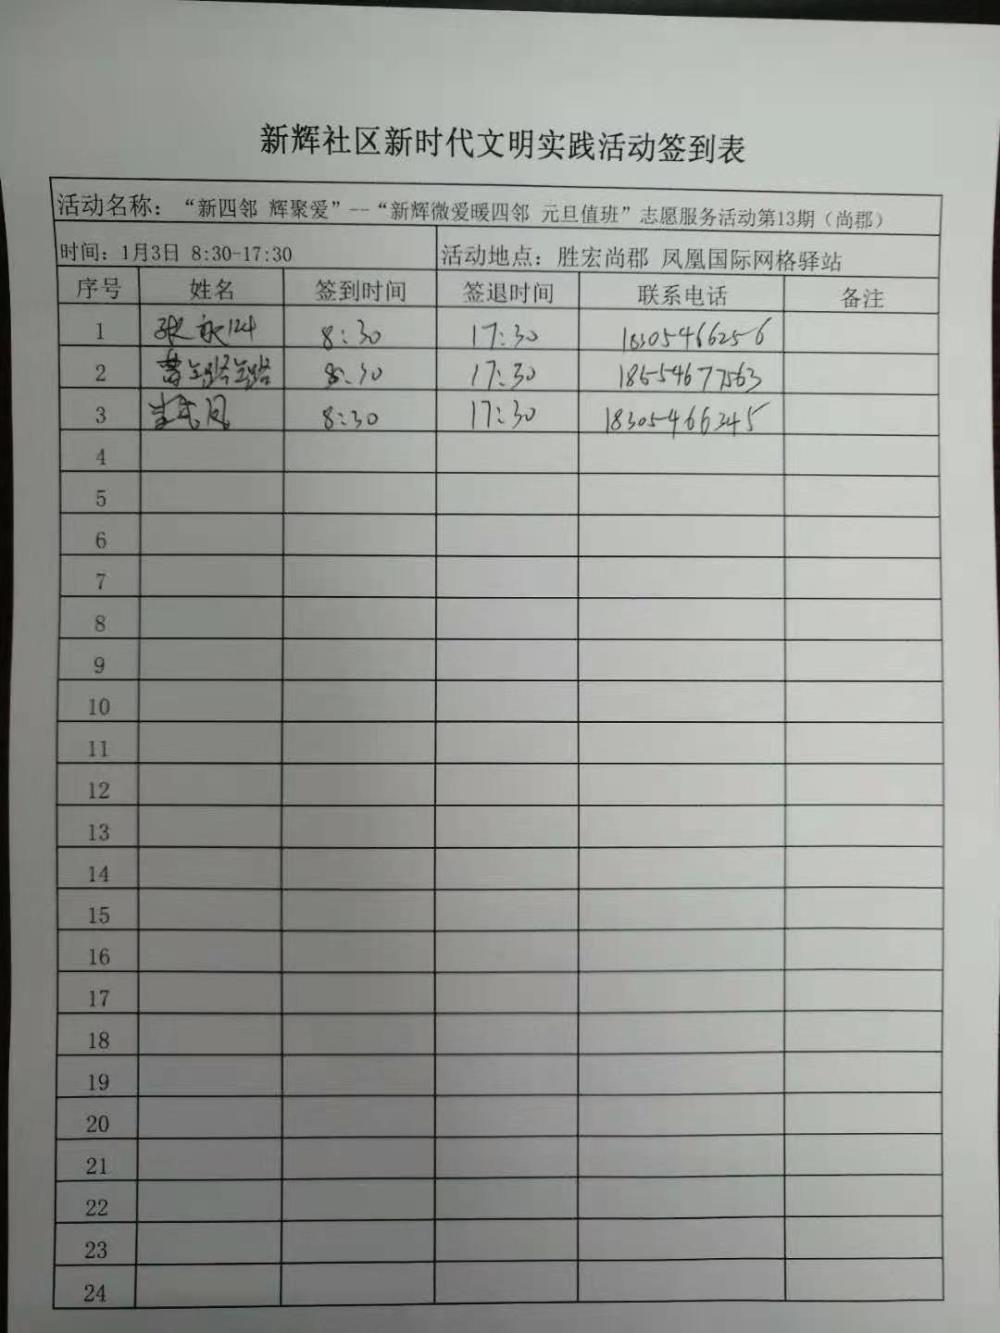 新辉社区新时代文明实践活动签到表
活动名称：“新四邻 辉聚爱”--“新辉微爱暖四邻 元旦值班”志愿服务活动第13期（尚郡）
时间：1月3日 8:30-17:30 活动地点：胜宏尚郡 凤凰国际网格驿站
序号 姓名 签到时间 签退时间 联系电话 备注
1 张 8:30 17:30 18305466256
2 8:30 17:30 18654677563
3 8:30 17:30 18305466345
4
5
6
7
8
9
10
11
12
13
14
15
16
17
18
19
20
21
22
23
24